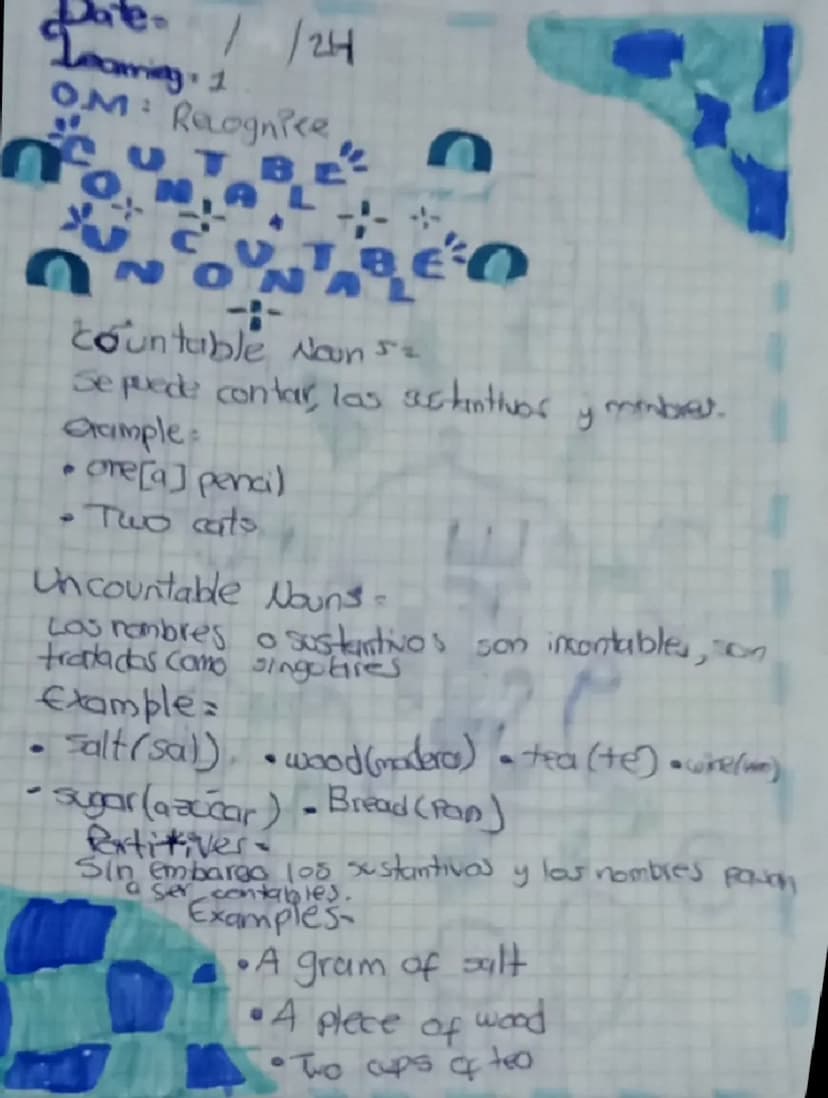 Date= / /24
Learning: 1
O.M: Recognice
COUNTABLE
UNCOUNTABLE
Countable Nouns=
Se puede contar, los sustantivos y nombres.
Example:
• One[a] pencil
• Two cats
Uncountable Nouns=
Los nombres o sustantivos son incontables, son
tratados como singulares
Example=
• Salt(sal) • wood(madera) • tea(te) • wine
- sugar(azúcar) - Bread(Pan)
Partitives-
Sin embargo los sustantivos y los nombres pasan
a ser contables.
Examples-
• A gram of salt
• A piece of wood
• Two cups of tea